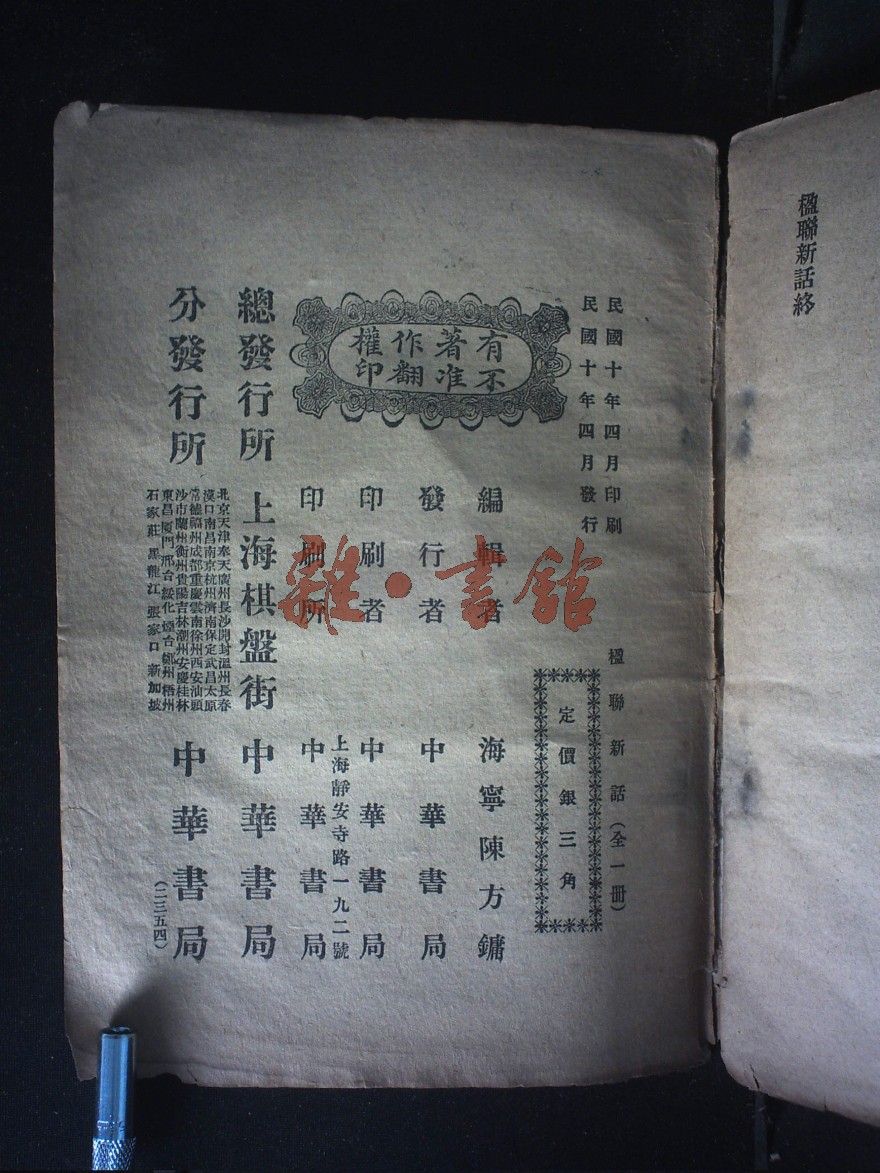 楹聯新話終
民國十年四月印刷
民國十年四月發行
楹聯新話（全一冊）
定價銀三角
有著作權
不准翻印
編輯者 海寧陳方鏞
發行者 中華書局
印刷者 中華書局
上海靜安寺路一九二號
印刷所 中華書局
總發行所 上海棋盤街 中華書局
分發行所
北京天津奉天廣州長沙開封溫州長春
漢口南昌南京杭州濟南保定武昌太原
常德福州成都重慶雲南徐州西安汕頭
沙市蘭州衡州貴陽吉林潮州安慶桂林
東昌厦門邢台綏化煙台鄭州梧州
石家莊黑龍江張家口新加坡
中華書局
（二三五四）
雜·書館